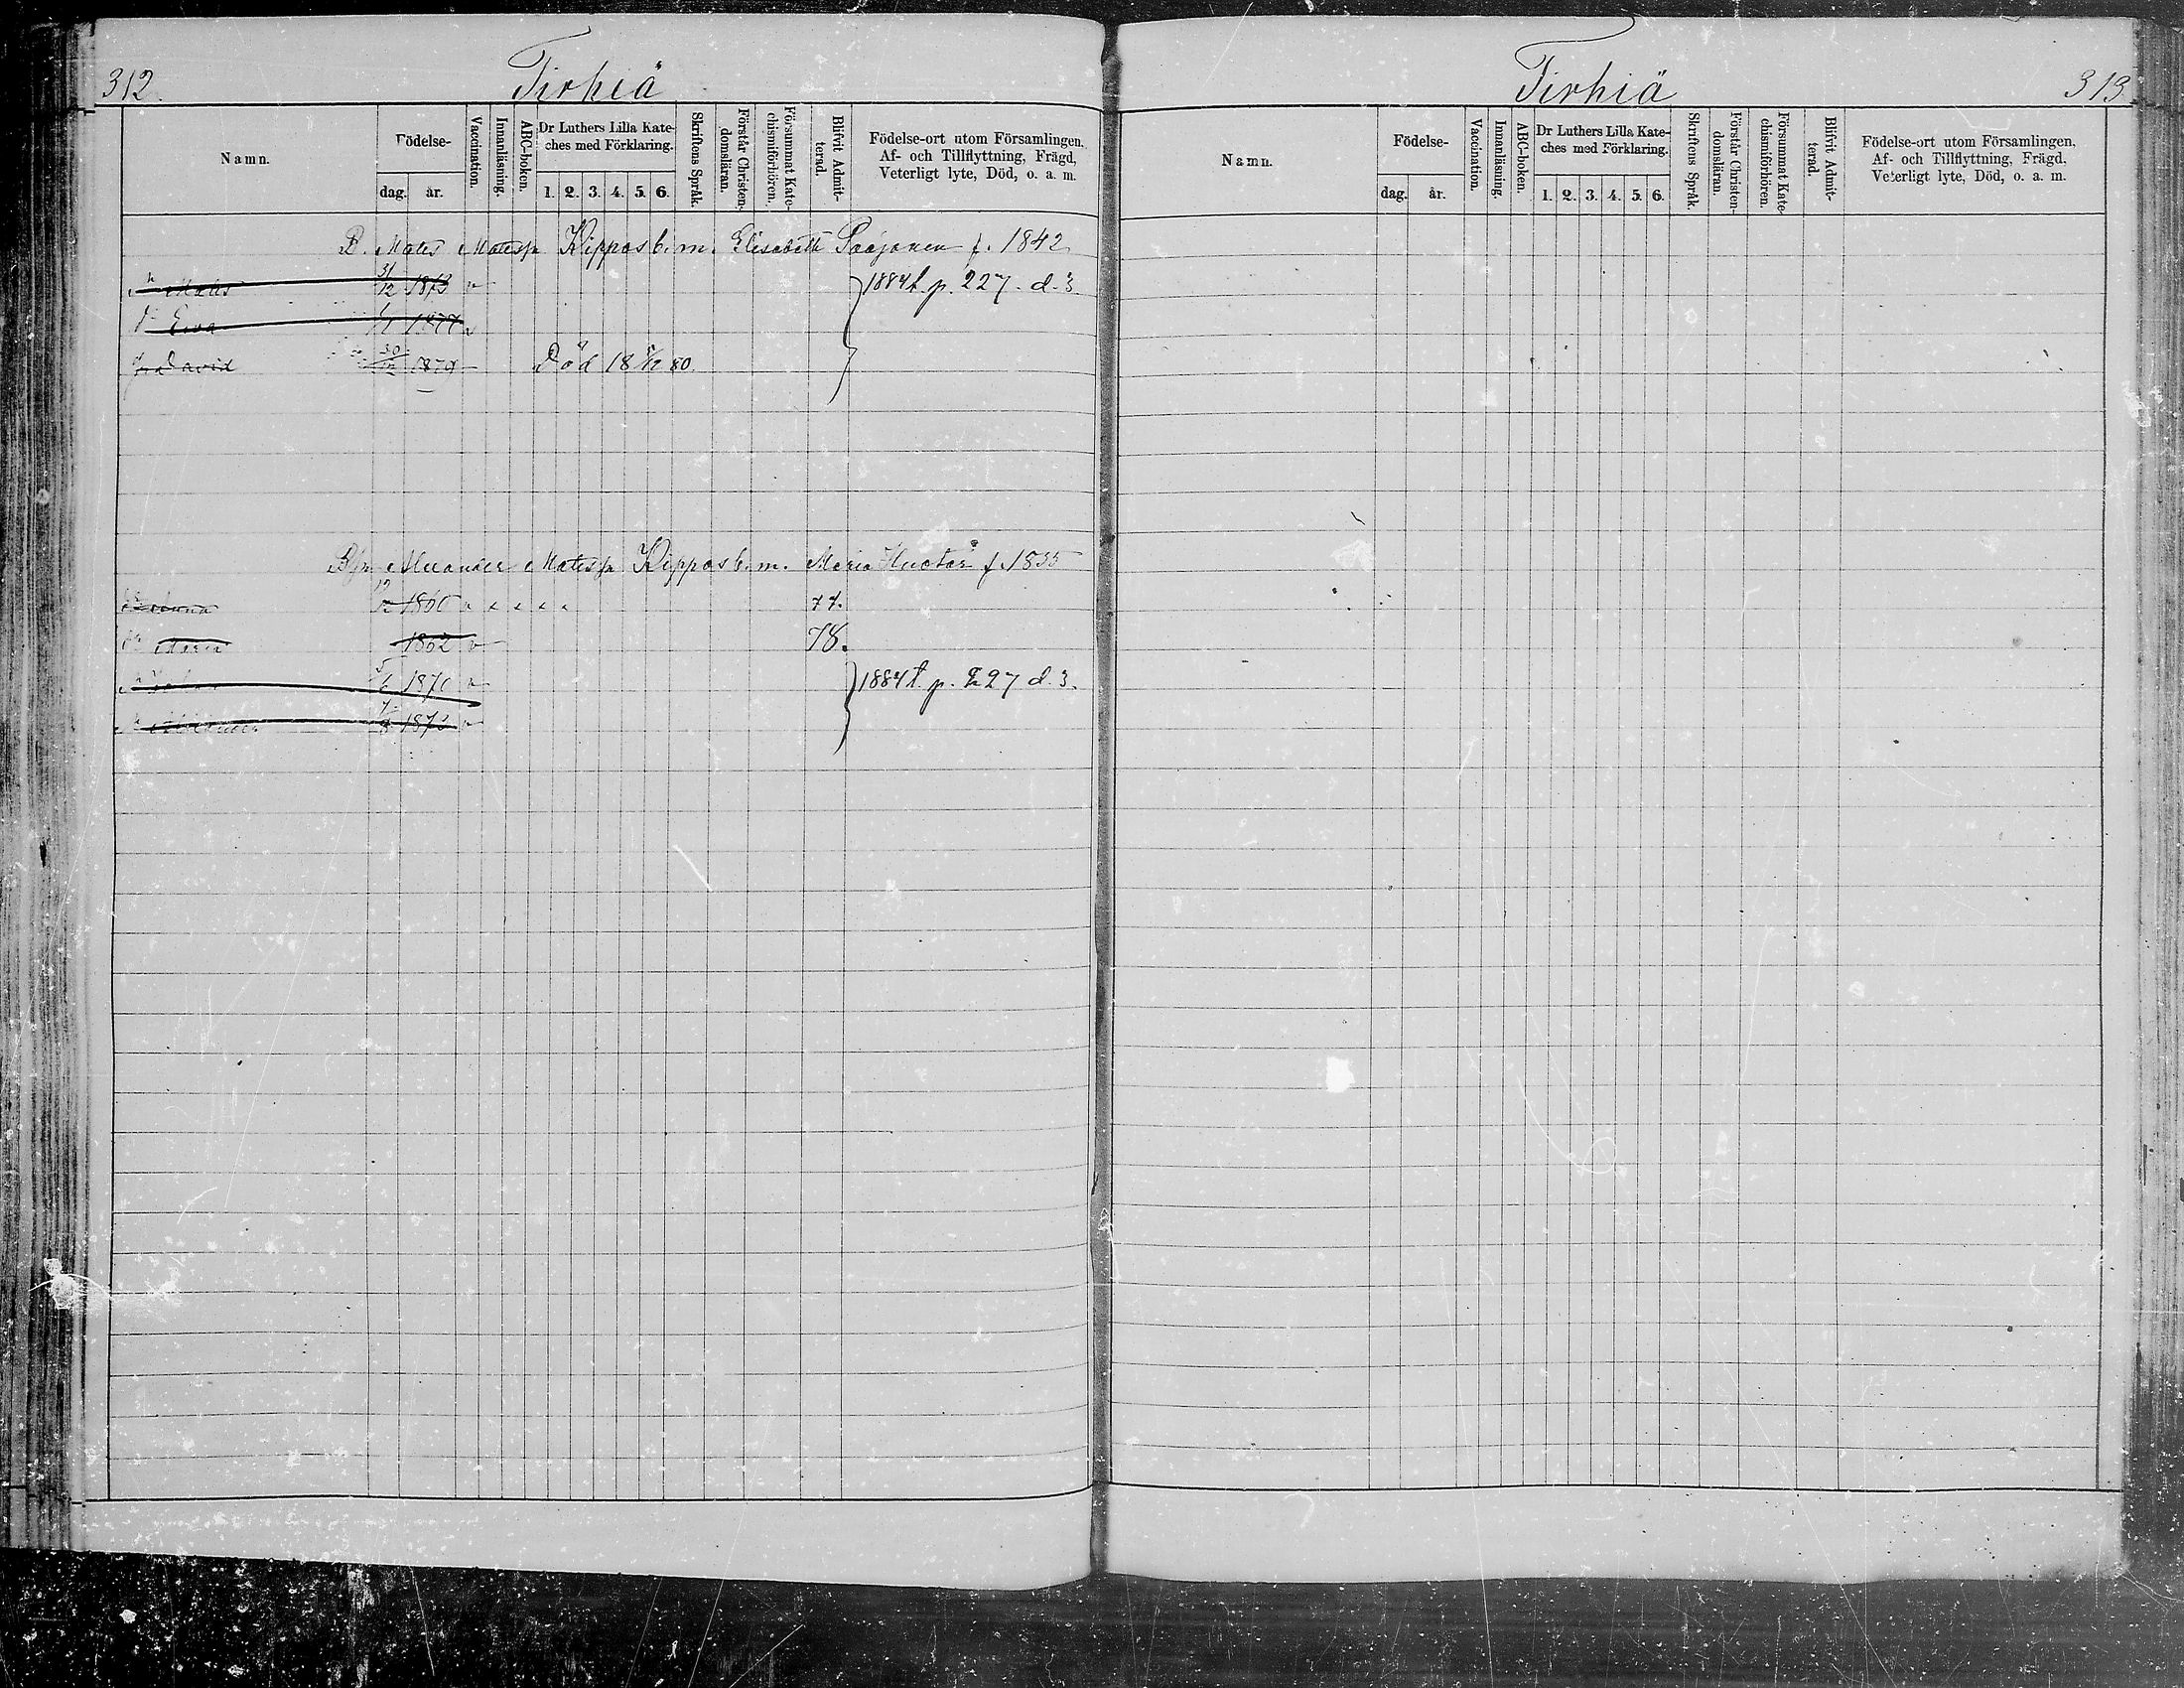 312.
Tirhiä
Namn.
Födelse-
dag.
år.
Vaccination.
Innanläsning.
ABC-boken.
Dr Luthers Lilla Kate-
ches med Förklaring.
1. 2. 3. 4. 5. 6.
Skriftens Språk.
Förstår Christen-
domsläran.
Försummat Kate-
chismiförhören.
Blifvit Admit-
terad.
Födelse-ort utom Församlingen,
Af- och Tillflyttning, Frägd,
Veterligt lyte, Död, o. a. m.
B. Mats Matss. Kippos b. m. Elisabeth Paajanen f. 1842
Mats 31/12 1873 v 1884 t. p. 227. d. 3.
Eva 1877 v
David 30 1879 Död 18 80.
Matss. Kippos b. m. Maria Huotar f. 1835
1860 77.
Maria 1862 v 78.
1870 v 1884 t. p. 227 d. 3.
1873 v
Tirhiä
313.
Namn.
Födelse-
dag.
år.
Vaccination.
Innanläsning.
ABC-boken.
Dr Luthers Lilla Kate-
ches med Förklaring.
1. 2. 3. 4. 5. 6.
Skriftens Språk.
Förstår Christen-
domsläran.
Försummat Kate-
chismiförhören.
Blifvit Admit-
terad.
Födelse-ort utom Församlingen,
Af- och Tillflyttning, Frägd,
Veterligt lyte, Död, o. a. m.